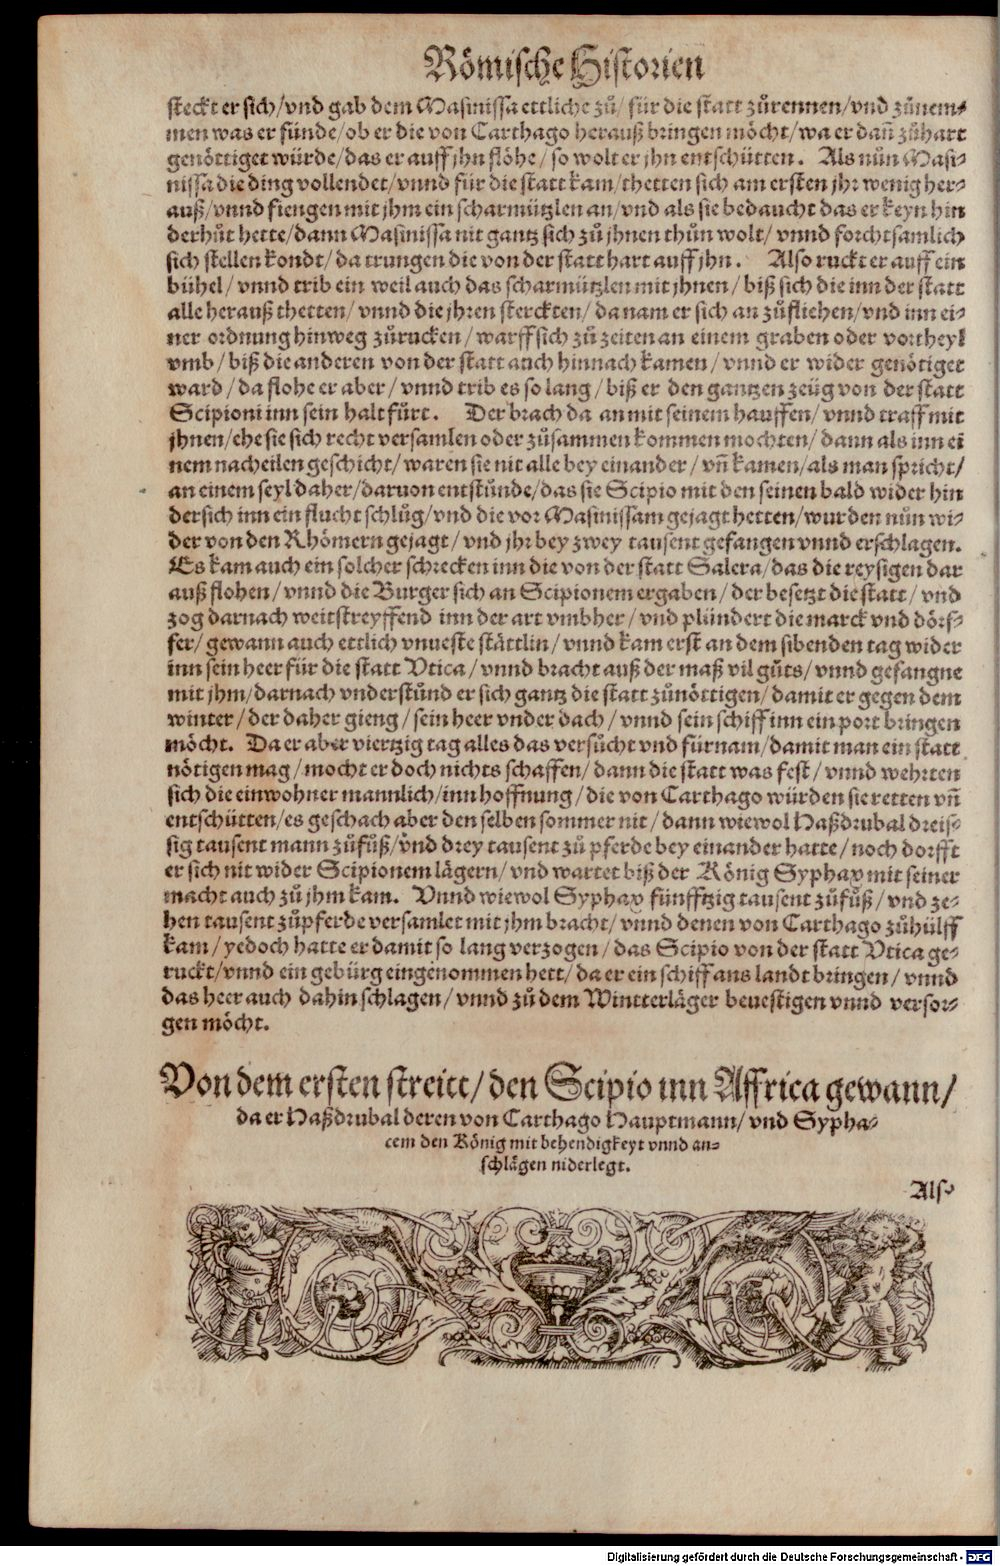 Römische Historien
steckt er sich/vnd gab dem Masinissa ettliche zů/ für die statt zůrennen/vnd zůnem-
men was er fünde/ob er die von Carthago herauß bringen möcht/wa er dañ zůhart
genöttiget würde/das er auff jhn flöhe/ so wolt er jhn entschütten. Als nůn Masi-
nissa die ding vollendet/vnnd für die statt kam/thetten sich am ersten jhr wenig her-
auß/vnnd fiengen mit jhm ein scharmützlen an/vnd als sie bedaucht das er keyn hin
derhůt hette/dann Masinissa nit gantz sich zů jhnen thůn wolt/ vnnd forchtsamlich
sich stellen kondt/da trungen die von der statt hart auff jhn. Also ruckt er auff ein
bühel/ vnnd trib ein weil auch das scharmützlen mit jhnen/ biß sich die inn der statt
alle herauß thetten/ vnnd die jhren sterckten/ da nam er sich an zůfliehen/vnd inn ei-
ner ordnung hinweg zůrucken/ warff sich zů zeiten an einem graben oder vortheyl
vmb/ biß die anderen von der statt auch hinnach kamen/ vnnd er wider genötiget
ward/ da flohe er aber/ vnnd trib es so lang/ biß er den gantzen zeüg von der statt
Scipioni inn sein halt fürt. Der brach da an mit seinem hauffen/ vnnd traff mit
jhnen/ehe sie sich recht versamlen oder zůsammen kommen mochten/ dann als inn ei
nem nacheilen geschicht/ waren sie nit alle bey einander/ vñ kamen/als man spricht/
an einem seyl daher/daruon entstůnde/das sie Scipio mit den seinen bald wider hin
dersich inn ein flucht schlůg/vnd die vor Masinissam gejagt hetten/wurden nůn wi-
der von den Rhömern gejagt/ vnd jhr bey zwey tausent gefangen vnnd erschlagen.
Es kam auch ein solcher schrecken inn die von der statt Salera/das die reysigen dar
auß flohen/ vnnd die Burger sich an Scipionem ergaben/ der besetzt die statt/ vnd
zog darnach weitstreyffend inn der art vmbher/ vnd plündert die marck vnd dörf-
fer/ gewann auch ettlich vnueste stättlin/ vnnd kam erst an dem sibenden tag wider
inn sein heer für die statt Vtica/ vnnd bracht auß der maß vil gůts/ vnnd gefangne
mit jhm/darnach vnderstůnd er sich gantz die statt zůnöttigen/ damit er gegen dem
winter/ der daher gieng/ sein heer vnder dach/ vnnd sein schiff inn ein port bringen
möcht. Da er aber viertzig tag alles das versůcht vnd fürnam/damit man ein statt
nötigen mag/ mocht er doch nichts schaffen/ dann die statt was fest/ vnnd wehrten
sich die einwohner mannlich/inn hoffnung/ die von Carthago würden sie retten vñ
entschütten/es geschach aber den selben sommer nit/ dann wiewol Haßdrubal dreis-
sig tausent mann zůfůß/vnd drey tausent zů pferde bey einander hatte/ noch dorfft
er sich nit wider Scipionem lägern/ vnd wartet biß der König Syphax mit seiner
macht auch zů jhm kam. Vnnd wiewol Syphax fünfftzig tausent zůfůß/ vnd ze-
hen tausent zůpferde versamlet mit jhm bracht/ vnnd denen von Carthago zůhülff
kam/ yedoch hatte er damit so lang verzogen/ das Scipio von der statt Vtica ge-
ruckt/vnnd ein gebürg eingenommen hett/ da er ein schiff ans landt bringen/ vnnd
das heer auch dahin schlagen/ vnnd zů dem Wintterläger beuestigen vnnd versor-
gen möcht.
Von dem ersten streitt/ den Scipio inn Affrica gewann/
da er Haßdrubal deren von Carthago Hauptmann/ vnd Sypha-
cem den König mit behendigkeyt vnnd an-
schlägen niderlegt.
Als
Digitalisierung gefördert durch die Deutsche Forschungsgemeinschaft - DFG